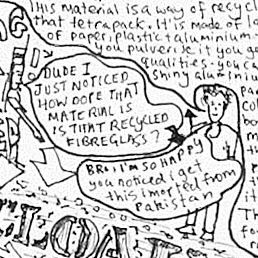 This material is a way of recycl
that tetrapack. It is made of l
of paper, plastic + aluminium.
you pulverise it you g
qualities. you ca
shiny aluminiu
DUDE I
JUST NOTICED
HOW DOPE THAT
MATERIAL IS
IS THAT RECYCLED
FIBREGLASS?
BRO, I'M SO HAPPY
you noticed i get
this imported from
pakistan